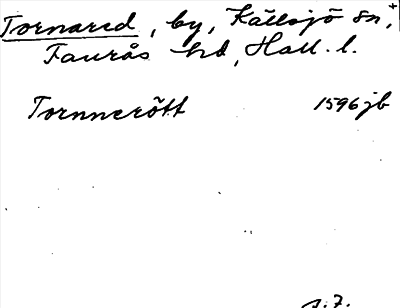 Tornared, by, Källsjö sn, +
Faurås hd, Hall. l.
Tornnerött 1596 jb